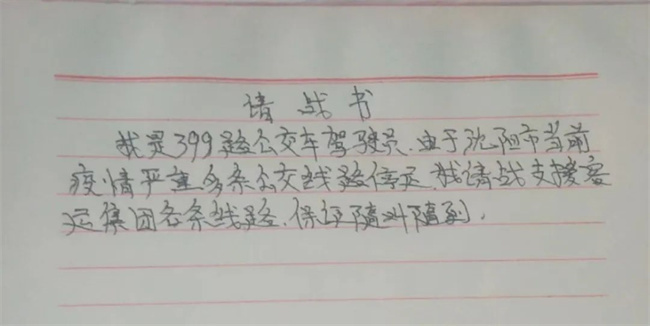 请战书
我是399路公交车驾驶员.由于沈阳市当前
疫情严重多条公交线路停运.我请战支援客
运集团各条线路.保证随叫随到.